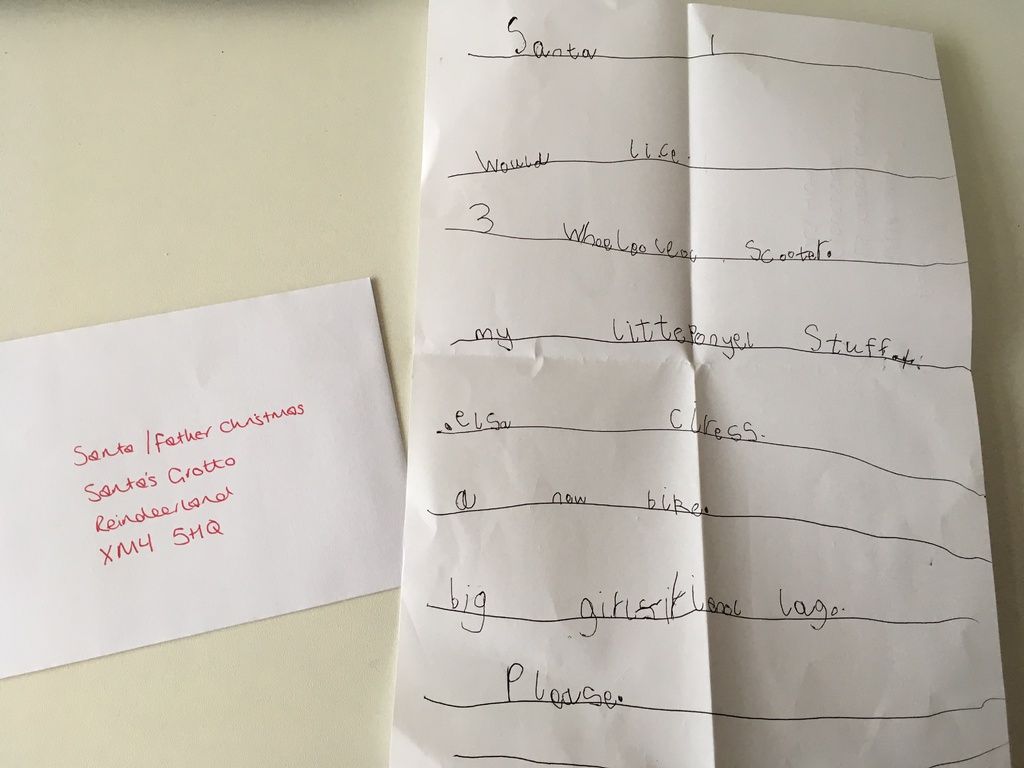 Santa / father christmas
Santa's Grotto
Reindeerland
XM4 5HQ
Santa I
Would lice.
3 scooter.
my little Stuff
.elsa dress.
a now bike.
big lago.
Please.